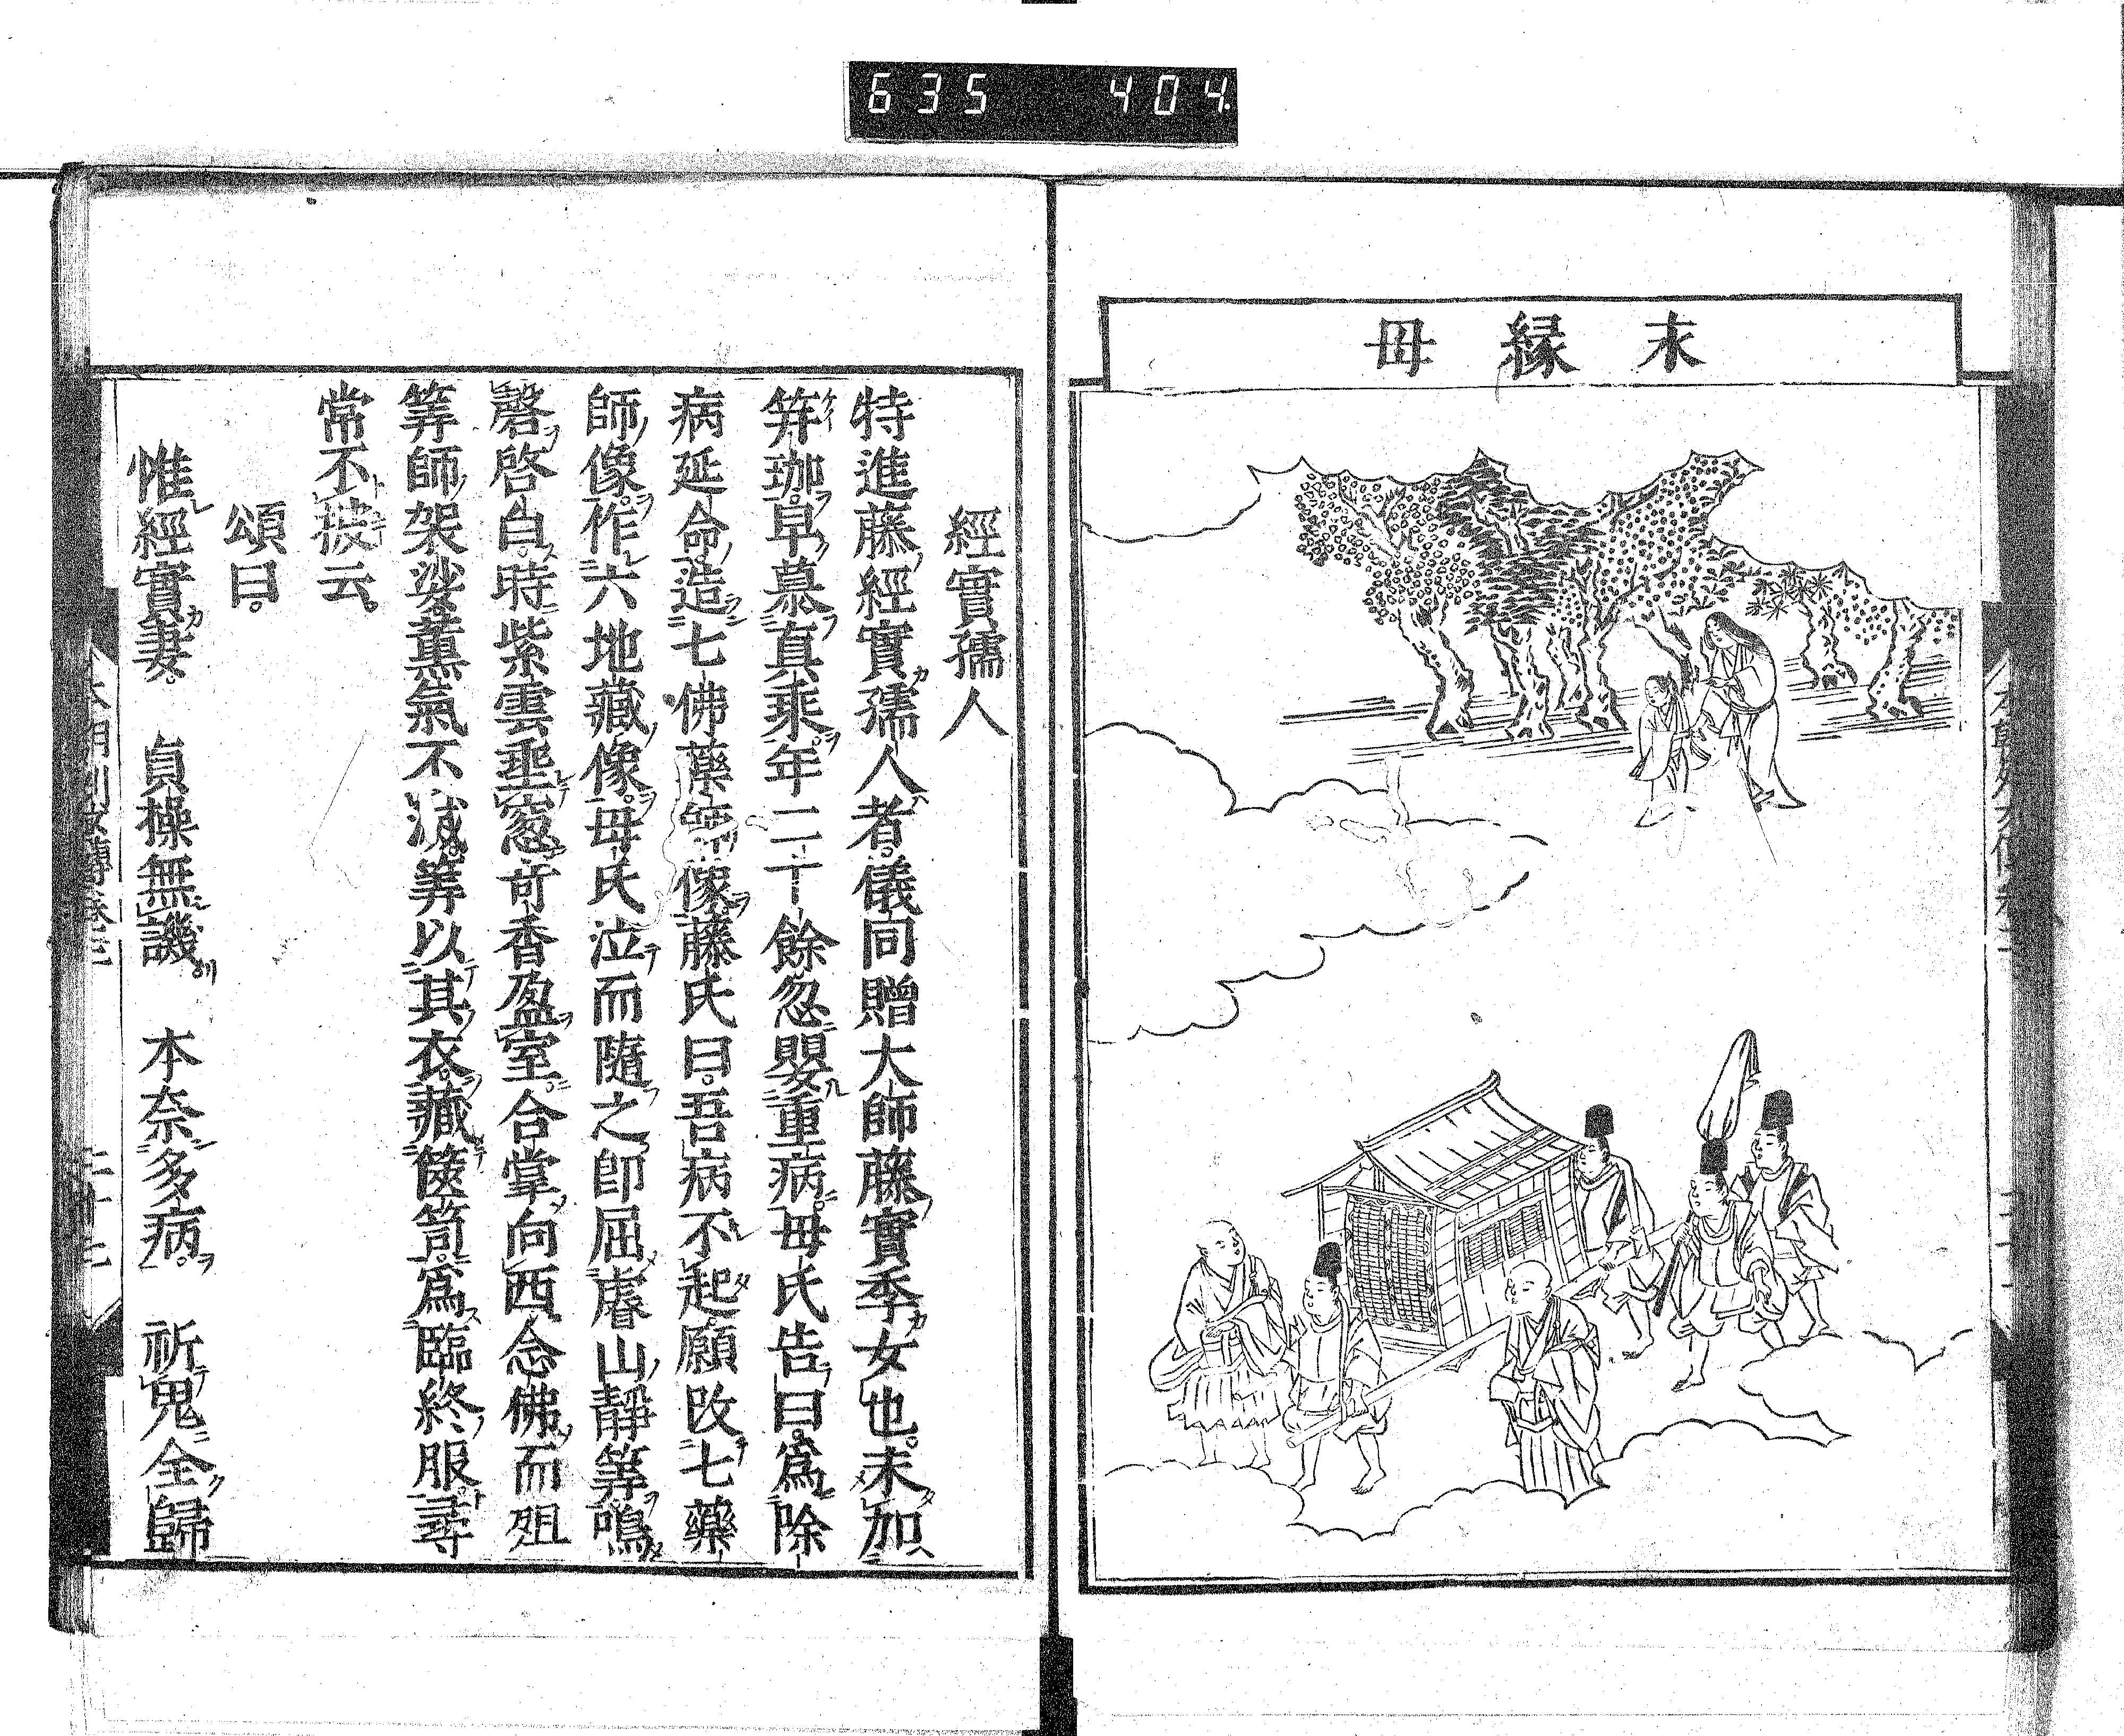 635 404
永縁母
經實孺人
特進藤經實孺人者儀同贈大師藤實季女也未加
笄珈早慕真乘年二十餘忽嬰重病母氏告曰為除
病延命造七佛藥師像藤氏曰吾病不起願改七藥
師像作六地藏像母氏泣而隨之即屈睿山靜筭鳴
磬啓白時紫雲垂窓奇香盈室合掌向西念佛而殂
筭師架裟薰氣不滅筭以其衣藏篋笥為臨終服尋
常不披云
頌曰
惟經實妻 貞操無譏 本奈多病 祈鬼全歸